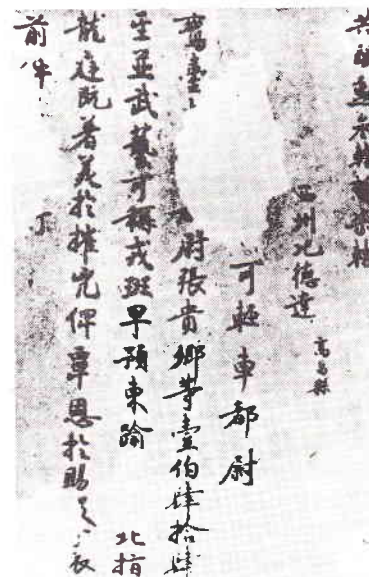 西州氾德達 高昌縣
可輕車都尉
鸞臺 尉張貴鄉等壹伯肆拾肆
武藝可稱戎班早預東踰北指
龍庭既著美於摧兇俾覃恩於賜
前件